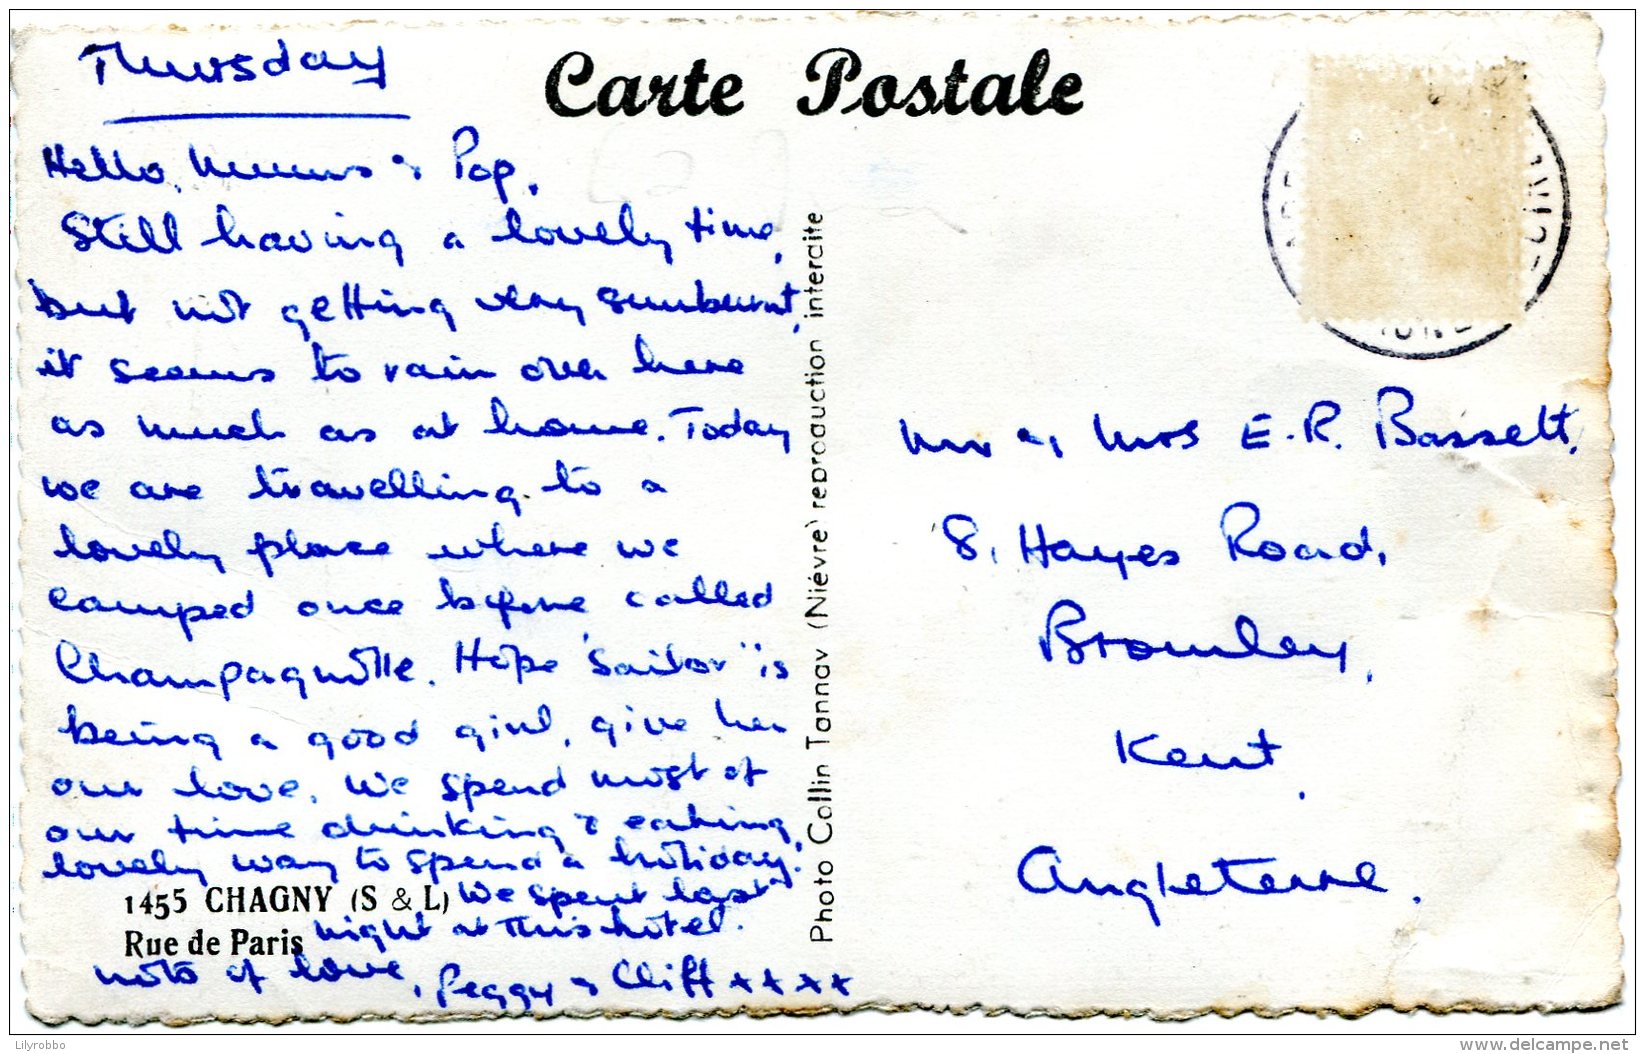 Carte Postale
Thursday
Hello, Mums & Pop,
Still having a lovely time,
but not getting very sunburnt,
it seems to rain over here
as much as at home. Today
we are travelling to a
lovely place where we
camped once before, called
Champagnolle. Hope "Sailor" is
being a good girl, give her
our love. We spend most of
our time drinking & eating,
lovely way to spend a holiday.
We spent last
night at this hotel.
lots of love,
Peggy & Cliff x x x x
1455 CHAGNY (S & L)
Rue de Paris
Photo Collin Tannay (Nièvre) reproduction interdite
Mr & Mrs E. R. Bassett,
8, Hayes Road,
Bromley,
Kent.
Angleterre.
Lilyrobbo
www.delcampe.net